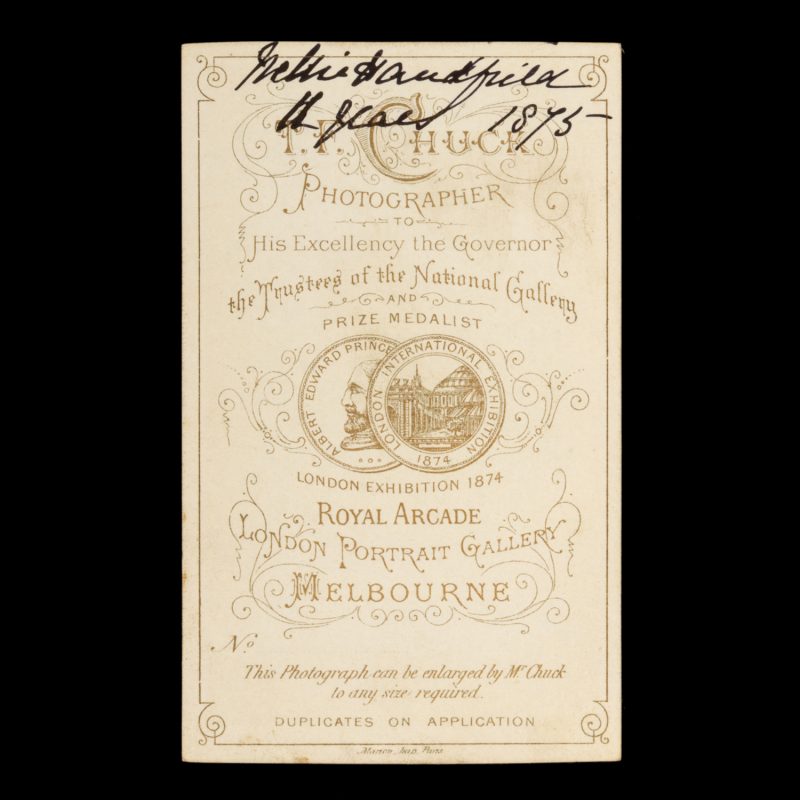 Nellie Handfield
11 years 1875
T.F. CHUCK
PHOTOGRAPHER
TO
His Excellency the Governor
the Trustees of the National Gallery
AND
PRIZE MEDALIST
ALBERT EDWARD PRINCE
LONDON INTERNATIONAL EXHIBITION
1874
LONDON EXHIBITION 1874
ROYAL ARCADE
LONDON PORTRAIT GALLERY
MELBOURNE
No.
This Photograph can be enlarged by Mr Chuck
to any size required.
DUPLICATES ON APPLICATION
Marion, Imp. Paris